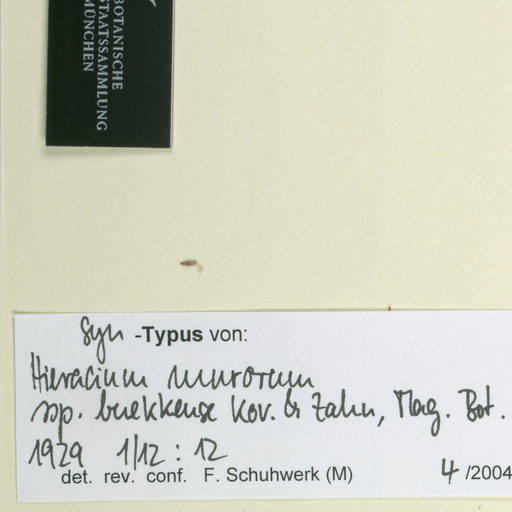 BOTANISCHE
STAATSSAMMLUNG
MÜNCHEN
Syn -Typus von:
Hieracium murorum
ssp. buekkense Kov. & Zahn, Mag. Bot.
1929 1/12 : 12
det. rev. conf. F. Schuhwerk (M) 4 /2004